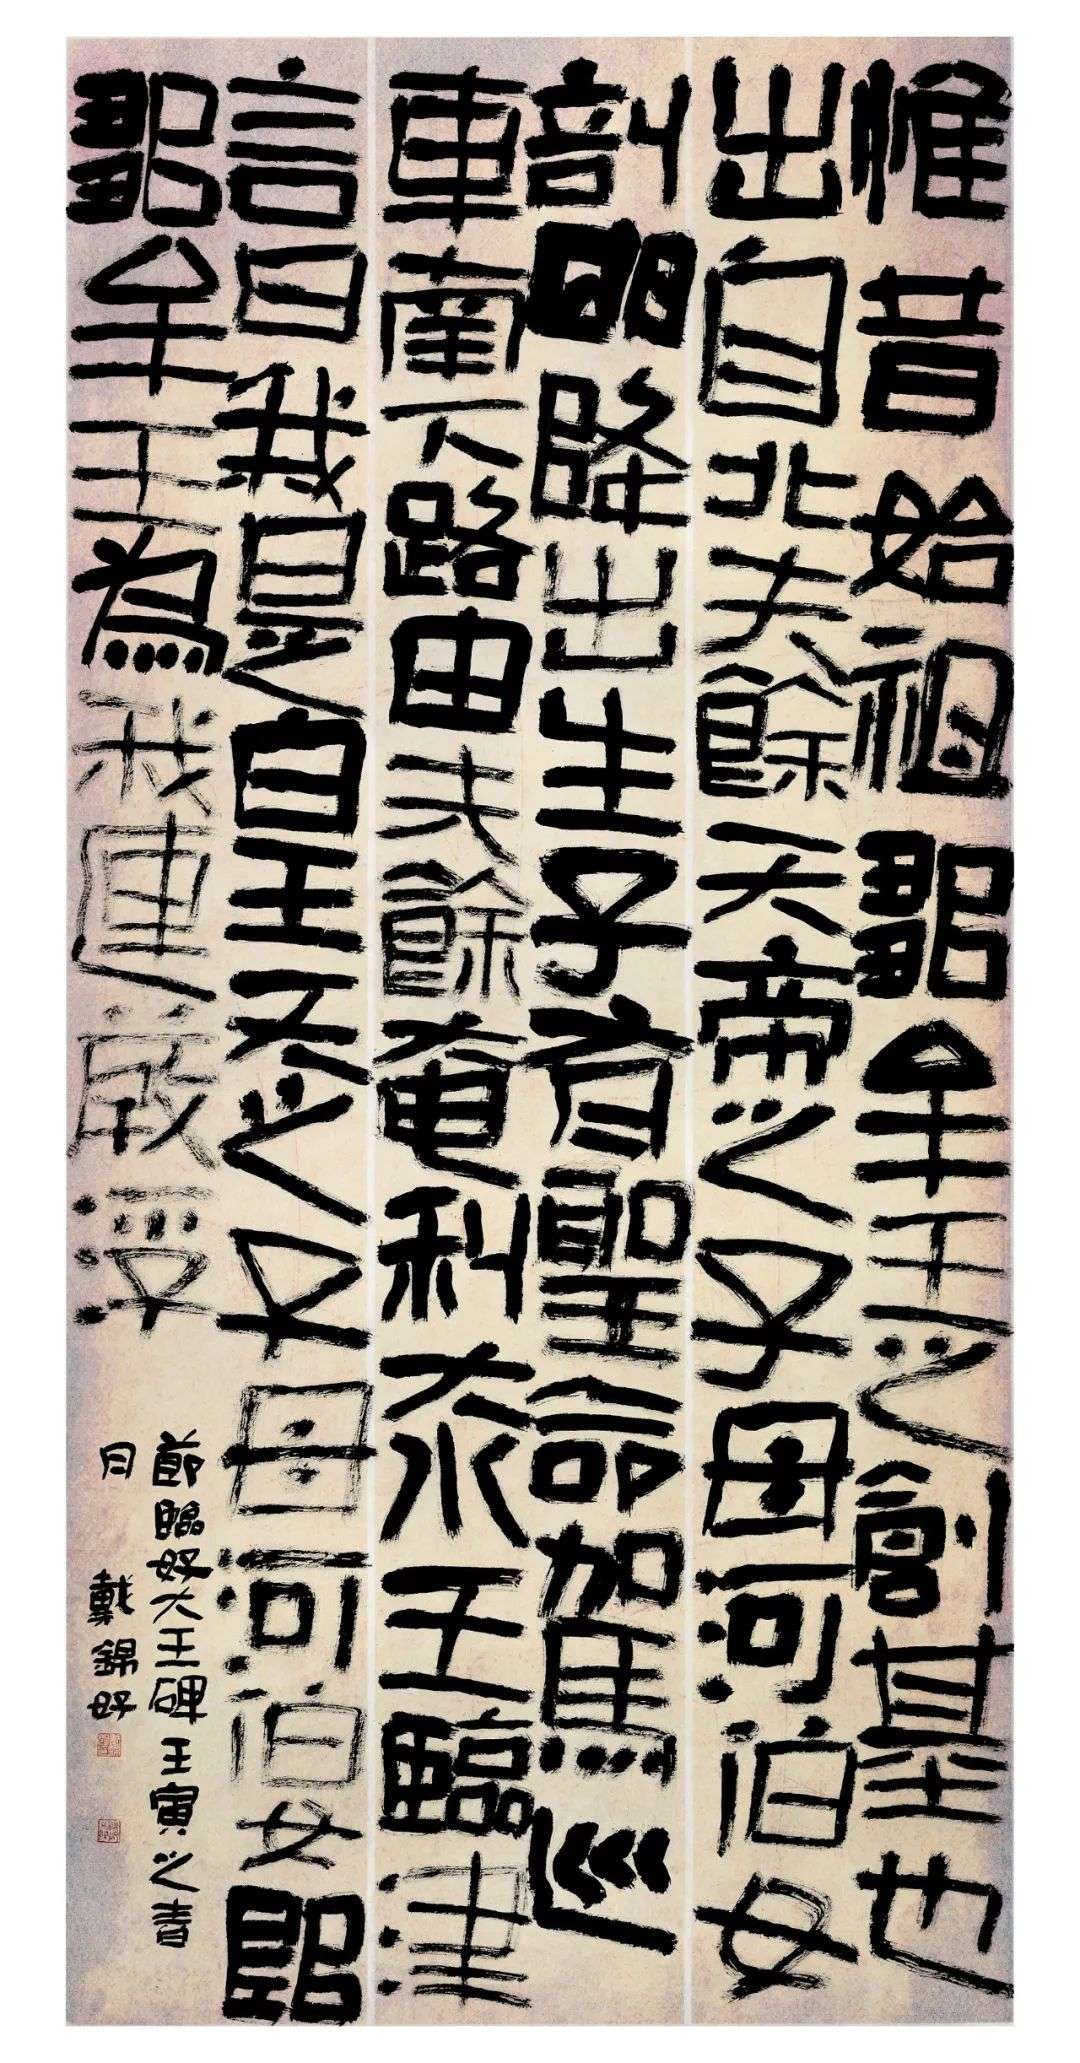 惟昔始祖鄒牟王之創基也
出自北夫餘天帝之子母河伯女
剖卵降出生子有聖命駕巡
車南下路由夫餘奄利大水王臨津
言曰我是皇天之子母河伯女郎
鄒牟王為我連葭浮
節臨好大王碑壬寅之春
月 戴錦好